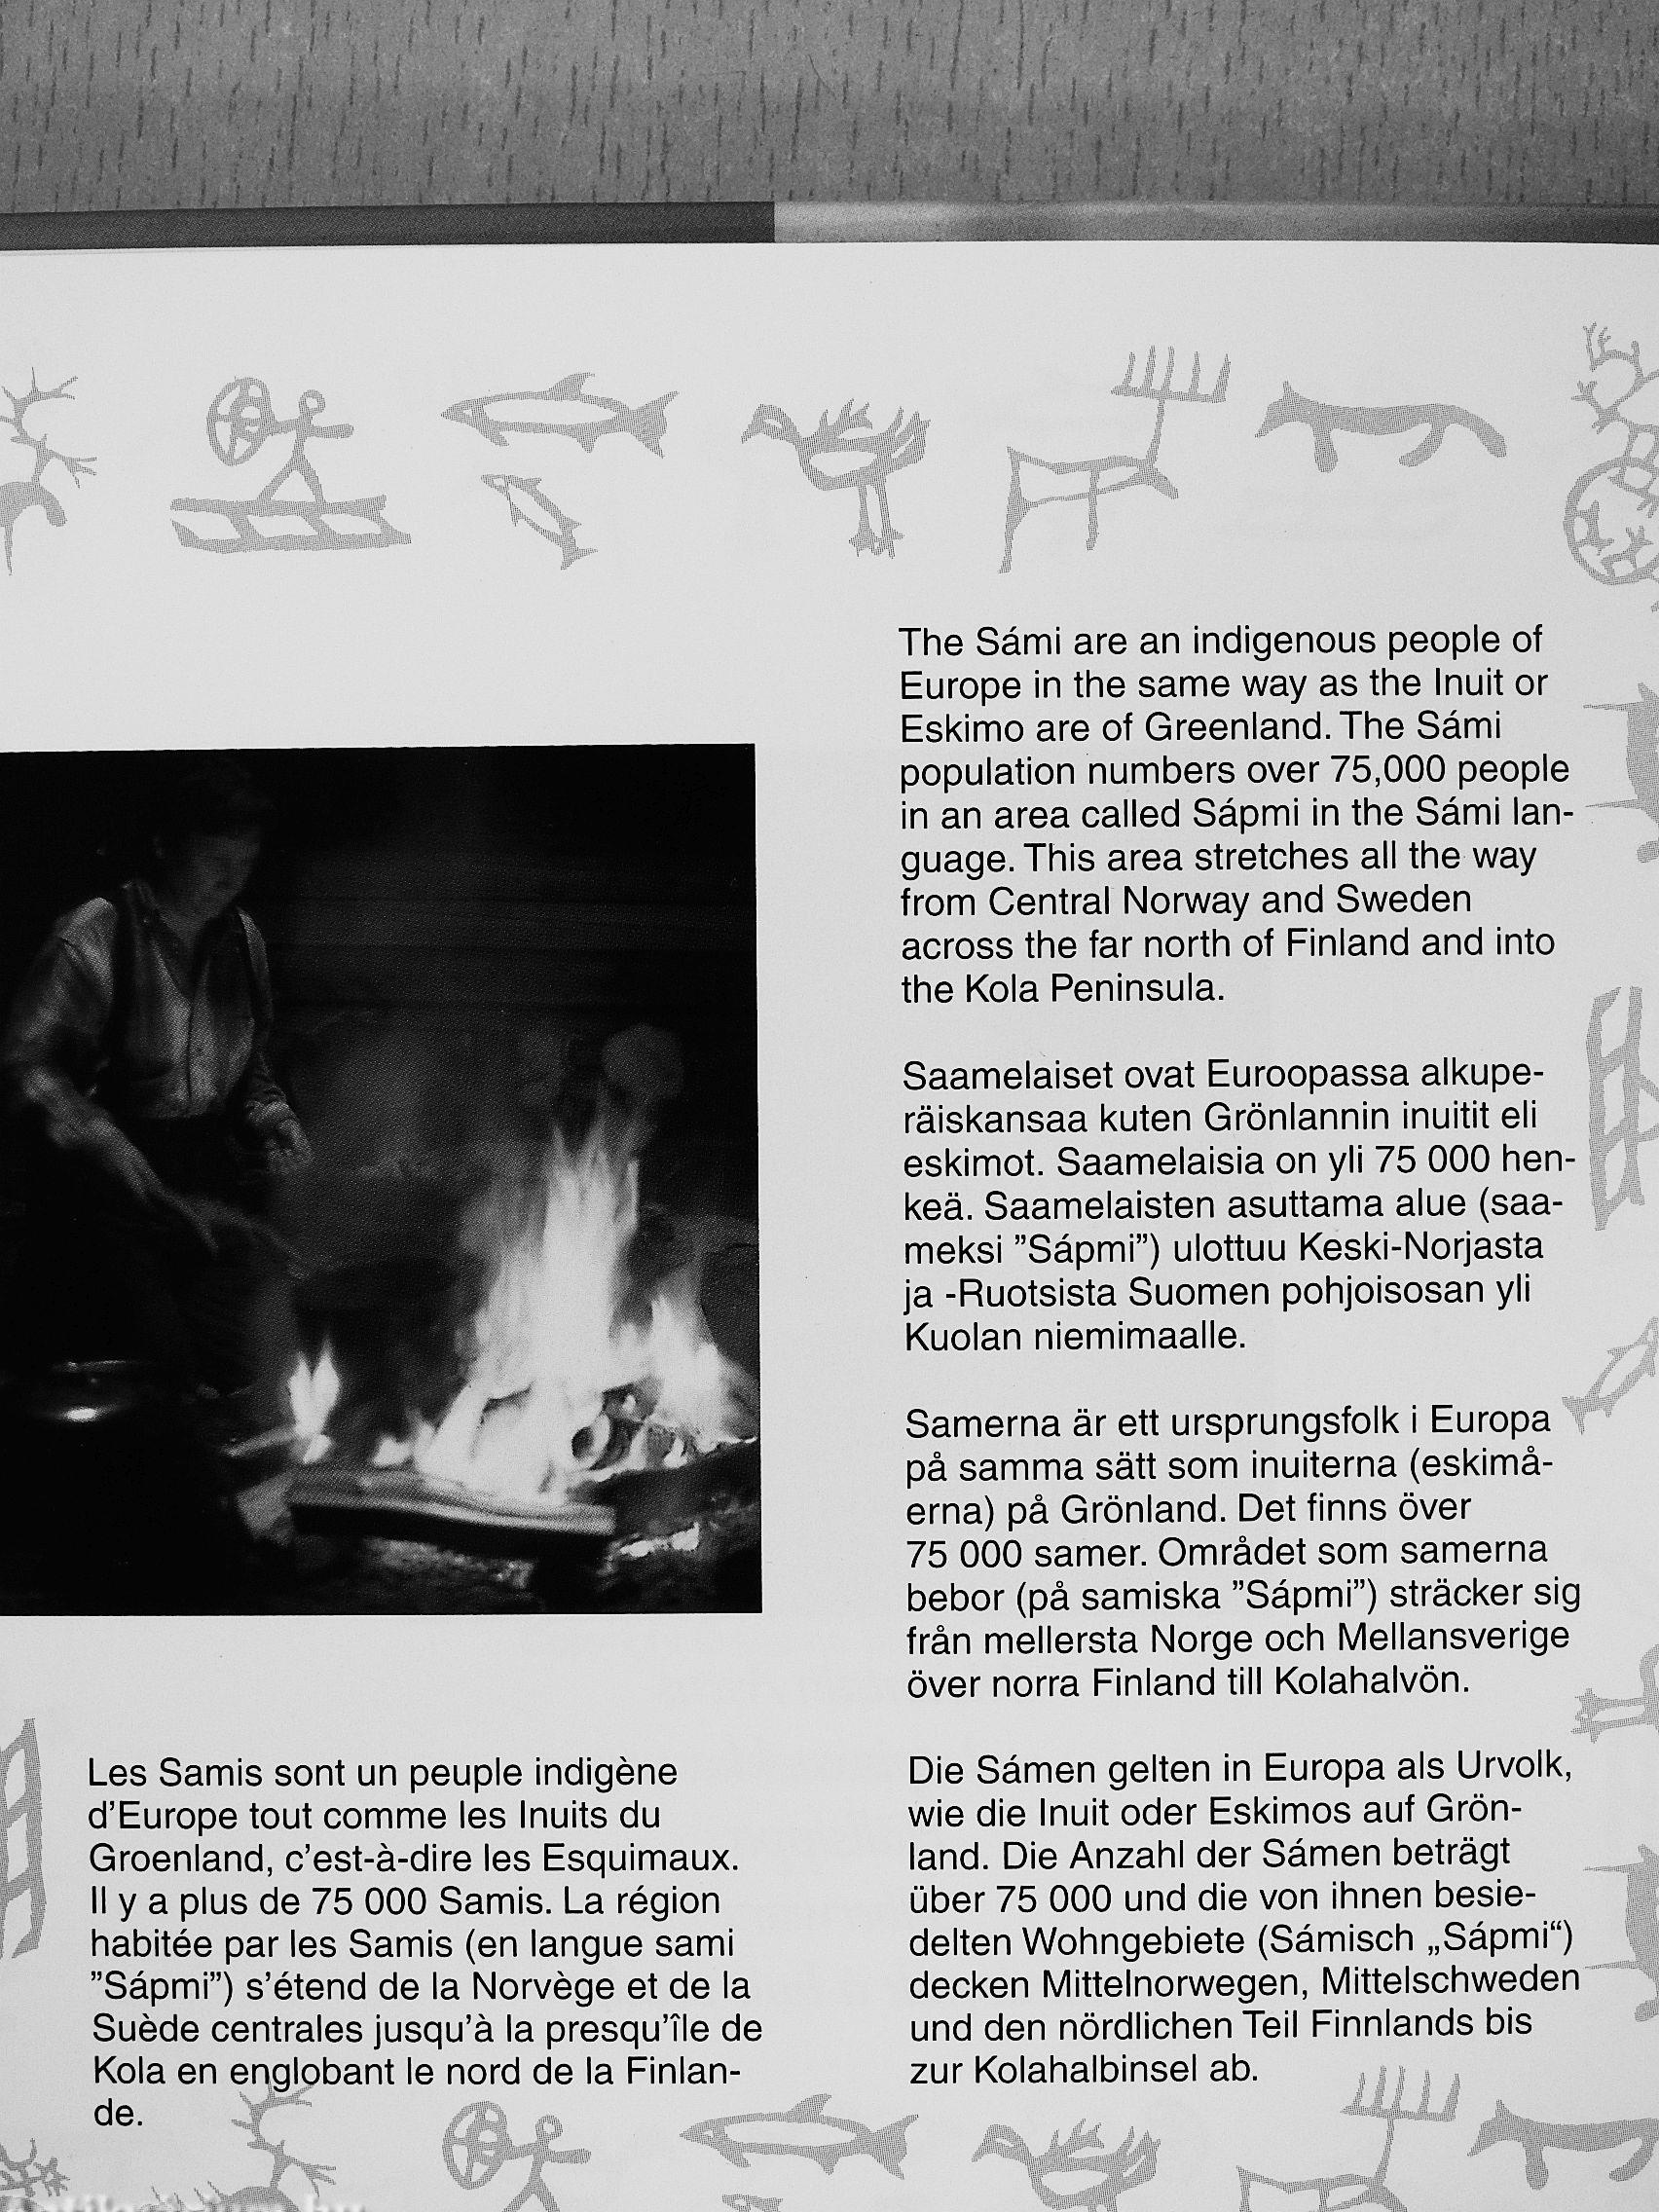 The Sámi are an indigenous people of
Europe in the same way as the Inuit or
Eskimo are of Greenland. The Sámi
population numbers over 75,000 people
in an area called Sápmi in the Sámi lan-
guage. This area stretches all the way
from Central Norway and Sweden
across the far north of Finland and into
the Kola Peninsula.
Saamelaiset ovat Euroopassa alkupe-
räiskansaa kuten Grönlannin inuitit eli
eskimot. Saamelaisia on yli 75 000 hen-
keä. Saamelaisten asuttama alue (saa-
meksi ”Sápmi”) ulottuu Keski-Norjasta
ja -Ruotsista Suomen pohjoisosan yli
Kuolan niemimaalle.
Samerna är ett ursprungsfolk i Europa
på samma sätt som inuiterna (eskimå-
erna) på Grönland. Det finns över
75 000 samer. Området som samerna
bebor (på samiska ”Sápmi”) sträcker sig
från mellersta Norge och Mellansverige
över norra Finland till Kolahalvön.
Die Sámen gelten in Europa als Urvolk,
wie die Inuit oder Eskimos auf Grön-
land. Die Anzahl der Sámen beträgt
über 75 000 und die von ihnen besie-
delten Wohngebiete (Sámisch „Sápmi“)
decken Mittelnorwegen, Mittelschweden
und den nördlichen Teil Finnlands bis
zur Kolahalbinsel ab.
Les Samis sont un peuple indigène
d’Europe tout comme les Inuits du
Groenland, c’est-à-dire les Esquimaux.
Il y a plus de 75 000 Samis. La région
habitée par les Samis (en langue sami
”Sápmi”) s’étend de la Norvège et de la
Suède centrales jusqu’à la presqu’île de
Kola en englobant le nord de la Finlan-
de.